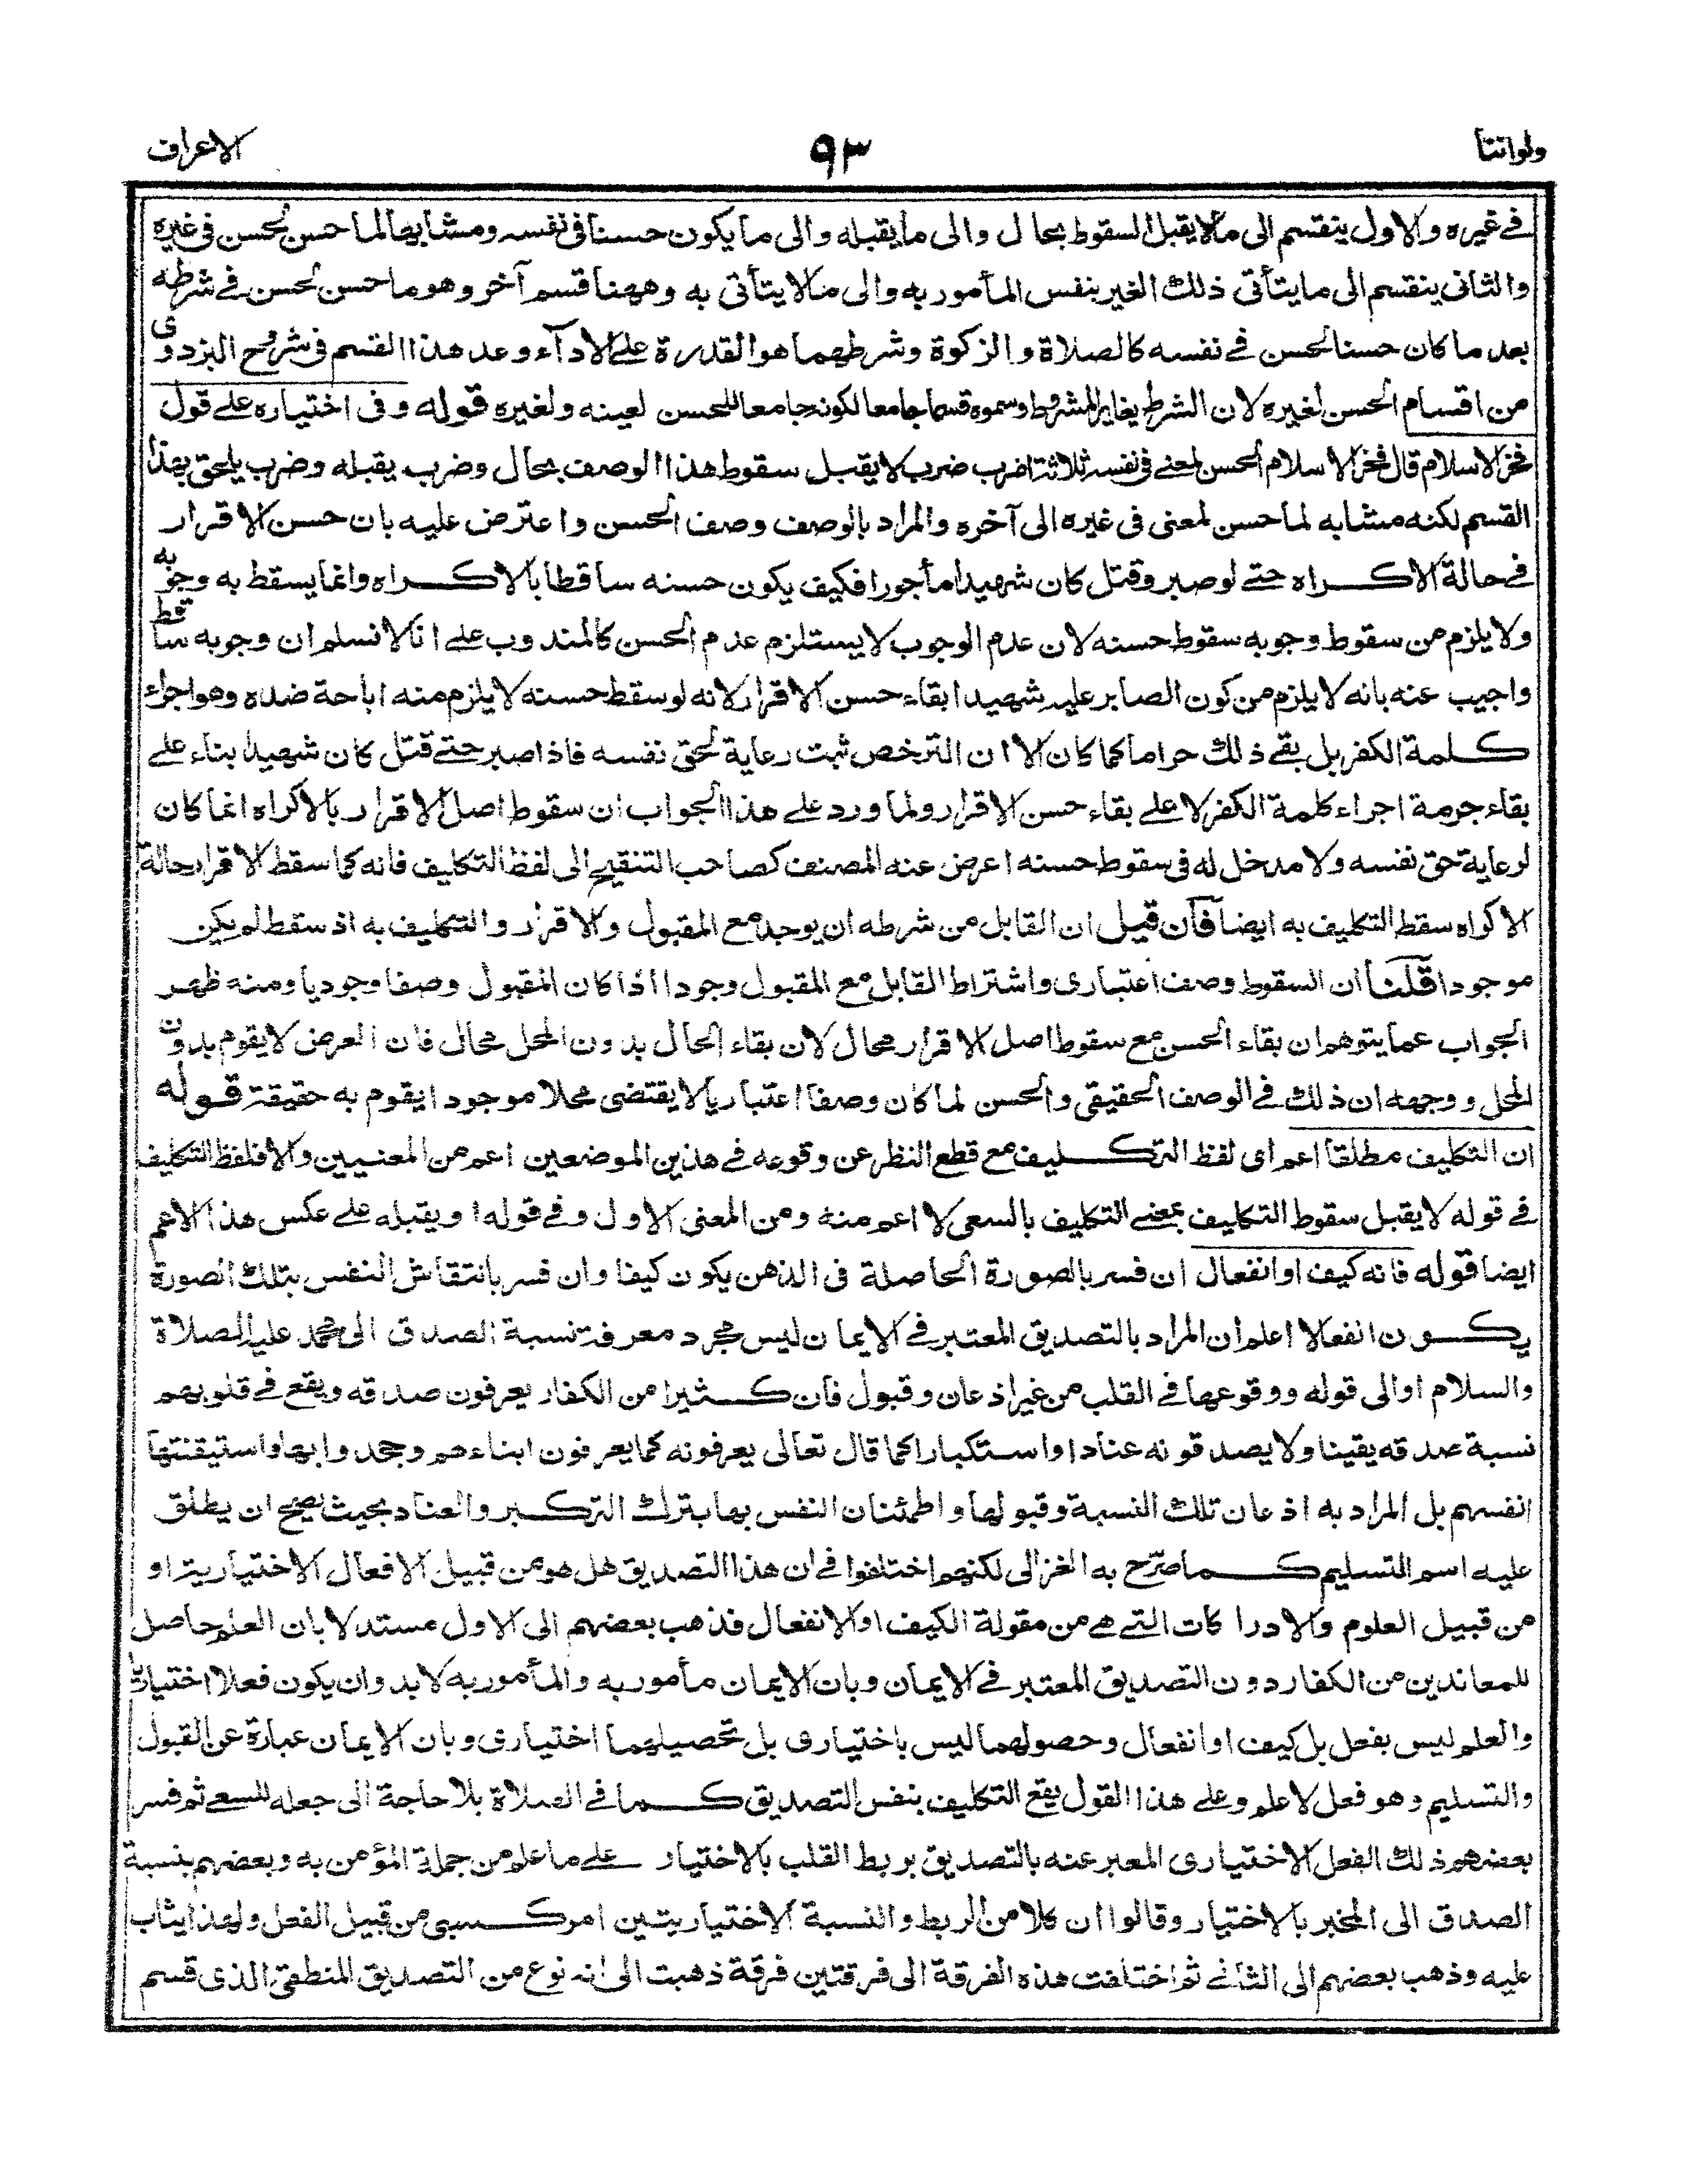 ولواننا ٩٣ الاعراف
في غيره والاول ينقسم الى ما لا يقبل السقوط بحال والى ما يقبله والى ما يكون حسنا في نفسه ومشابها لما حسن لحسن في غيره
والثانى ينقسم الى ما يتأتى ذلك الغير بنفس المأمور به والى ما لا يتأتى به وههنا قسم آخر وهو ما حسن لحسن في شرطه
بعد ما كان حسنا لحسن في نفسه كالصلاة والزكوة وشرطهما هو القدرة على الادآء وعد هذا القسم فى شروح البزدوى
من اقسام الحسن لغيره لان الشرط يغاير المشروط وسموه قسما جامعا لكونه جامعا للحسن لعينه ولغيره قوله وفى اختياره على قول
فخر الاسلام قال فخر الاسلام الحسن لمعنى فى نفسه ثلاثة اضرب ضرب لا يقبل سقوط هذا الوصف بحال وضرب يقبله وضرب يلحق بهذا
القسم لكنه مشابه لما حسن لمعنى فى غيره الى آخره والمراد بالوصف وصف الحسن واعترض عليه بان حسن الاقرار
في حالة الاكراه حتى لو صبر وقتل كان شهيدا مأجورا فكيف يكون حسنه ساقطا بالاكراه وانما يسقط به وجوبه
ولا يلزم من سقوط وجوبه سقوط حسنه لان عدم الوجوب لا يستلزم عدم الحسن كالمندوب على انا لا نسلم ان وجوبه ساقط
واجيب عنه بانه لا يلزم من كون الصابر عليه شهيدا بقاء حسن الاقرار لانه لو سقط حسنه لا يلزم منه اباحة ضده وهو اجراء
كلمة الكفر بل بقى ذلك حراما كما كان الا ان الترخص ثبت رعاية لحق نفسه فاذا صبر حتى قتل كان شهيدا بناء على
بقاء حرمة اجراء كلمة الكفر لا على بقاء حسن الاقرار ولما ورد على هذا الجواب ان سقوط اصل الاقرار بالاكراه انما كان
لرعاية حق نفسه ولا مدخل له فى سقوط حسنه اعرض عنه المصنف كصاحب التنقيح الى لفظ التكليف فانه كما سقط الاقرار حالة
الاكراه سقط التكليف به ايضا فان قيل ان القابل من شرطه ان يوجد مع المقبول والاقرار والتكليف به اذ سقط لم يكن
موجودا قلنا ان السقوط وصف اعتبارى واشتراط القابل مع المقبول وجودا اذا كان المقبول وصفا وجوديا ومنه ظهر
الجواب عما يتوهم ان بقاء الحسن مع سقوط اصل الاقرار محال لان بقاء الحال بدون المحل محال فان العرض لا يقوم بدون
المحل ووجهه ان ذلك في الوصف الحقيقى والحسن لما كان وصفا اعتباريا لا يقتضى محلا موجودا يقوم به حقيقة قوله
ان التكليف مطلقا اعم اى لفظ التركليف مع قطع النظر عن وقوعه في هذين الموضعين اعم من المعنيين والا فلفظ التكليف
في قوله لا يقبل سقوط التكليف بمعنى التكليف بالسعى لا اعم منه ومن المعنى الاول وفي قوله او يقبله على عكس هذا الاعم
ايضا قوله فانه كيف او انفعال ان فسر بالصورة الحاصلة فى الذهن يكون كيفا وان فسر بانتقاش النفس بتلك الصورة
يكون انفعالا اعلم ان المراد بالتصديق المعتبر في الايمان ليس مجرد معرفة نسبة الصدق الى محمد عليه الصلاة
والسلام او الى قوله ووقوعها في القلب من غير اذعان وقبول فان كثيرا من الكفار يعرفون صدقه ويقع في قلوبهم
نسبة صدقه يقينا ولا يصدقونه عنادا واستكبارا كما قال تعالى يعرفونه كما يعرفون ابناءهم وجحدوا بها واستيقنتها
انفسهم بل المراد به اذعان تلك النسبة وقبولها واطمئنان النفس بها بترك التركبر والعناد بحيث يصح ان يطلق
عليه اسم التسليم كما صرّح به الغزالى لكنهم اختلفوا في ان هذا التصديق هل هو من قبيل الافعال الاختيارية او
من قبيل العلوم والادراكات التى هى من مقولة الكيف او الانفعال فذهب بعضهم الى الاول مستدلا بان العلم حاصل
للمعاندين من الكفار دون التصديق المعتبر في الايمان وبان الايمان مأمور به والمأمور به لا بد وان يكون فعلا اختياريا
والعلم ليس بفعل بل كيف او انفعال وحصولهما ليس باختيارى بل تحصيلهما اختيارى وبان الايمان عبارة عن القبول
والتسليم وهو فعل لا علم وعلى هذا القول يقع التكليف بنفس التصديق كما في الصلاة بلا حاجة الى جعله للسعى ثم فسر
بعضهم ذلك الفعل الاختيارى المعبر عنه بالتصديق بربط القلب بالاختيار على ما علم من جملة المؤمن به وبعضهم بنسبة
الصدق الى المخبر بالاختيار وقالوا ان كلا من الربط والنسبة الاختياريتين امر كسبى من قبيل الفعل ولهذا يثاب
عليه وذهب بعضهم الى الثانى ثم اختلفت هذه الفرقة الى فرقتين فرقة ذهبت الى انه نوع من التصديق المنطقى الذى قسم